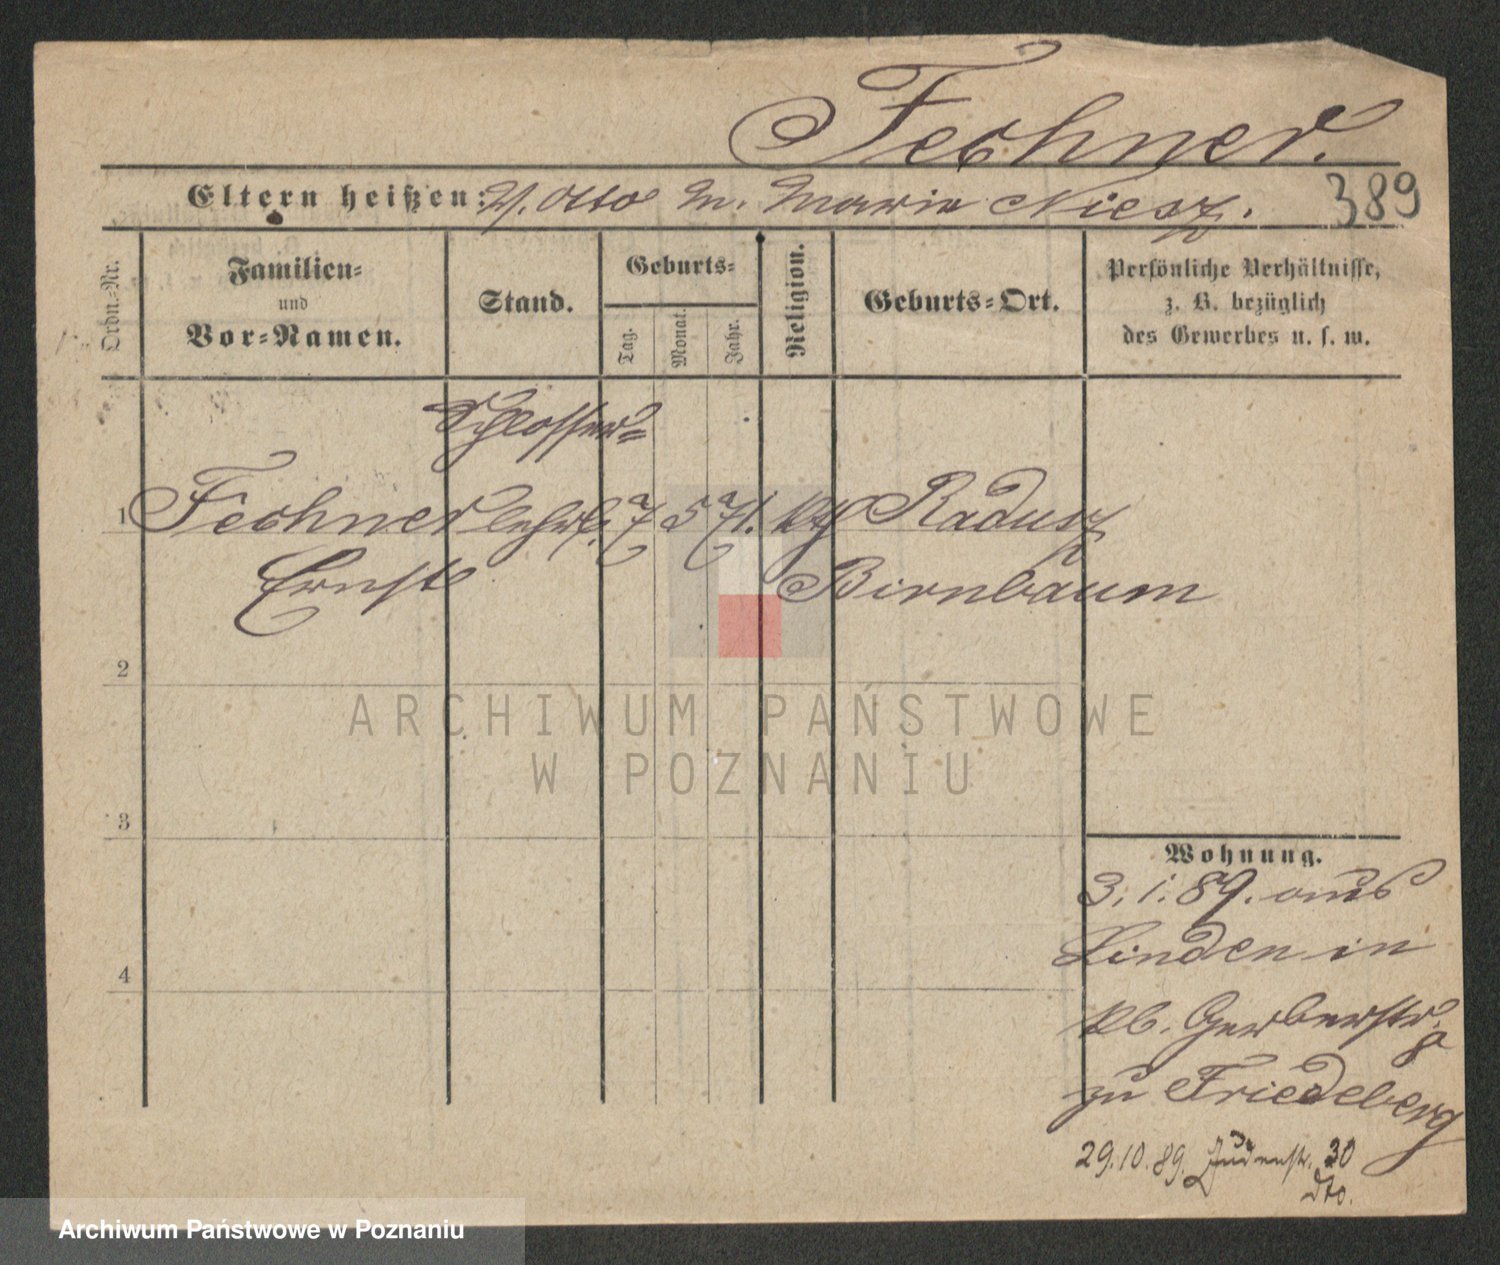 Fechner.
Eltern heißen: V. Otto M. Maria Niesz.
389
Ordn.=Nr.
Familien=
und
Vor=Namen.
Stand.
Geburts=
Tag.
Monat.
Jahr.
Religion.
Geburts=Ort.
Persönliche Verhältnisse,
z. B. bezüglich
des Gewerbes u. s. w.
Schlosser=
1 Fechner lehrl. 7 5 71. kth Radusz
Ernst Birnbaum
2
3
4
Wohnung.
3.1.89. aus
Linden in
Gerberstr. 8
zu Friedeberg
29.10.89. Judenstr. 30
dto.
ARCHIWUM PAŃSTWOWE
W POZNANIU
Archiwum Państwowe w Poznaniu